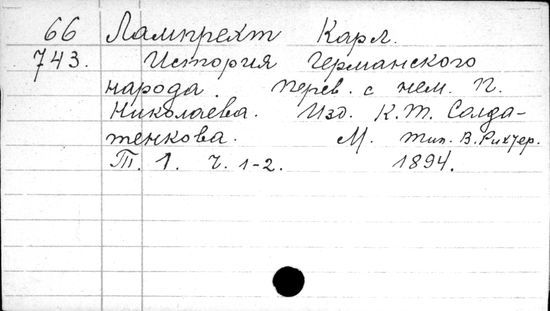 66 Лампрехт Карл.
743. История Германского
народа. Перев. с нем. П.
Николаева. Изд. К.Т. Солда-
тенкова. М. Тип. В. Рихтер.
Т. 1. Ч. 1-2. 1894.